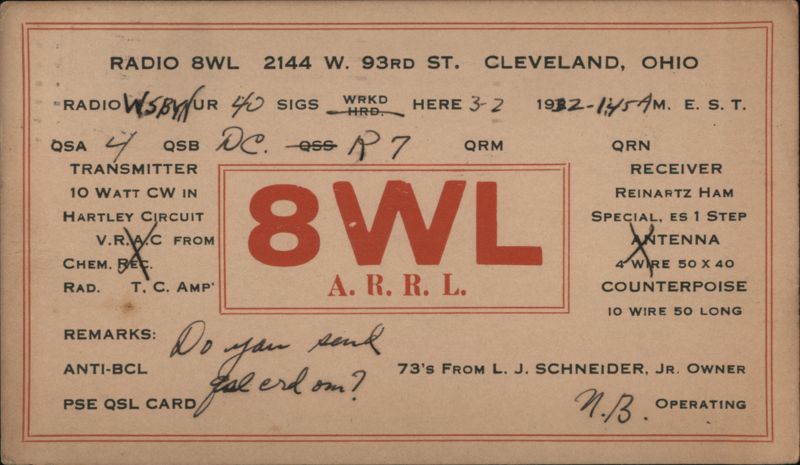 RADIO 8WL 2144 W. 93RD ST. CLEVELAND, OHIO
RADIO W5BYX UR 40 SIGS WRKD HRD. HERE 3-2 1932-1:45 A M. E. S. T.
QSA 4 QSB DC. QSS R 7 QRM QRN
TRANSMITTER
10 WATT CW IN
HARTLEY CIRCUIT
V.R.A.C FROM
CHEM. REC.
RAD. T. C. AMP.
8WL
A. R. R. L.
RECEIVER
REINARTZ HAM
SPECIAL, ES 1 STEP
ANTENNA
4 WIRE 50 X 40
COUNTERPOISE
10 WIRE 50 LONG
REMARKS: Do you send
qsl crd om?
ANTI-BCL
PSE QSL CARD
73's FROM L. J. SCHNEIDER, JR. OWNER
N.B. OPERATING